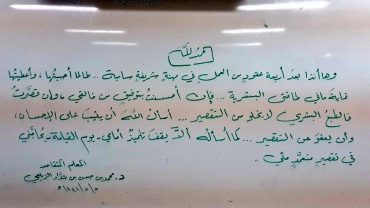 الحمد لله
وها أنذا بعد أربعة عقود من العمل في مهنة شريفة سامية ... طالما أحببتها ، وأعطيتها
غاية ما في طاقتي البشرية ... فإن أحسنت بتوفيق من خالقي ، وإن قصّرت
فالطبع البشري لا يخلو من التقصير ... أسأل الله أن يثيب على الإحسان ،
وأن يعفو عن التقصير ... كما أسأله ألا يقف تلميذ أمامي يوم القيامة يحاجّني
في تقصير متعمد مني .
المعلم المتقاعد
د. محمد بن حسن بن